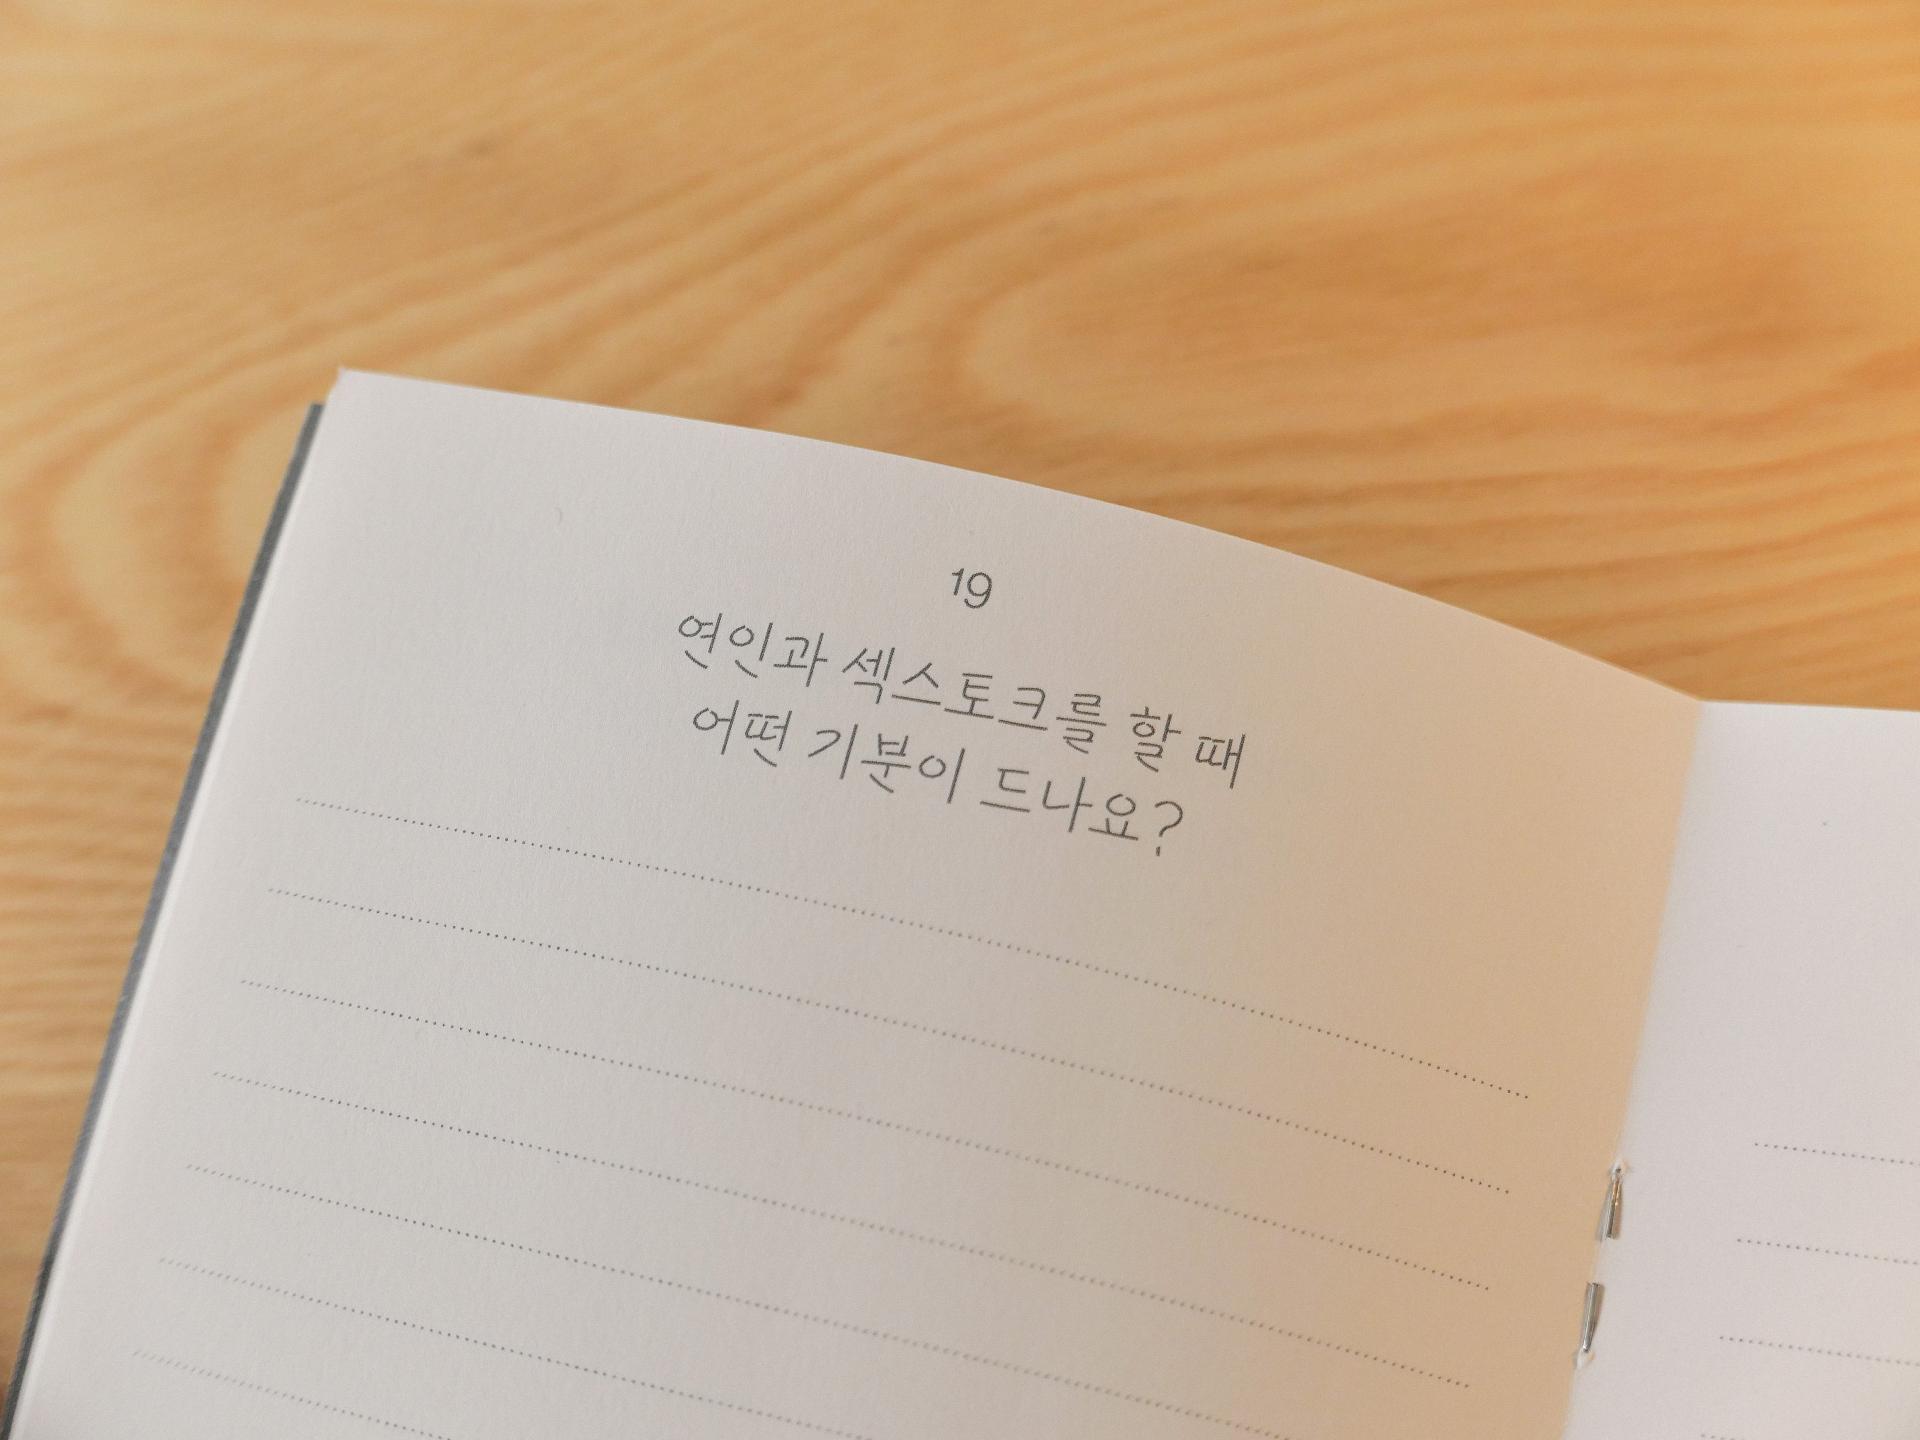 19
연인과 섹스토크를 할 때
어떤 기분이 드나요?